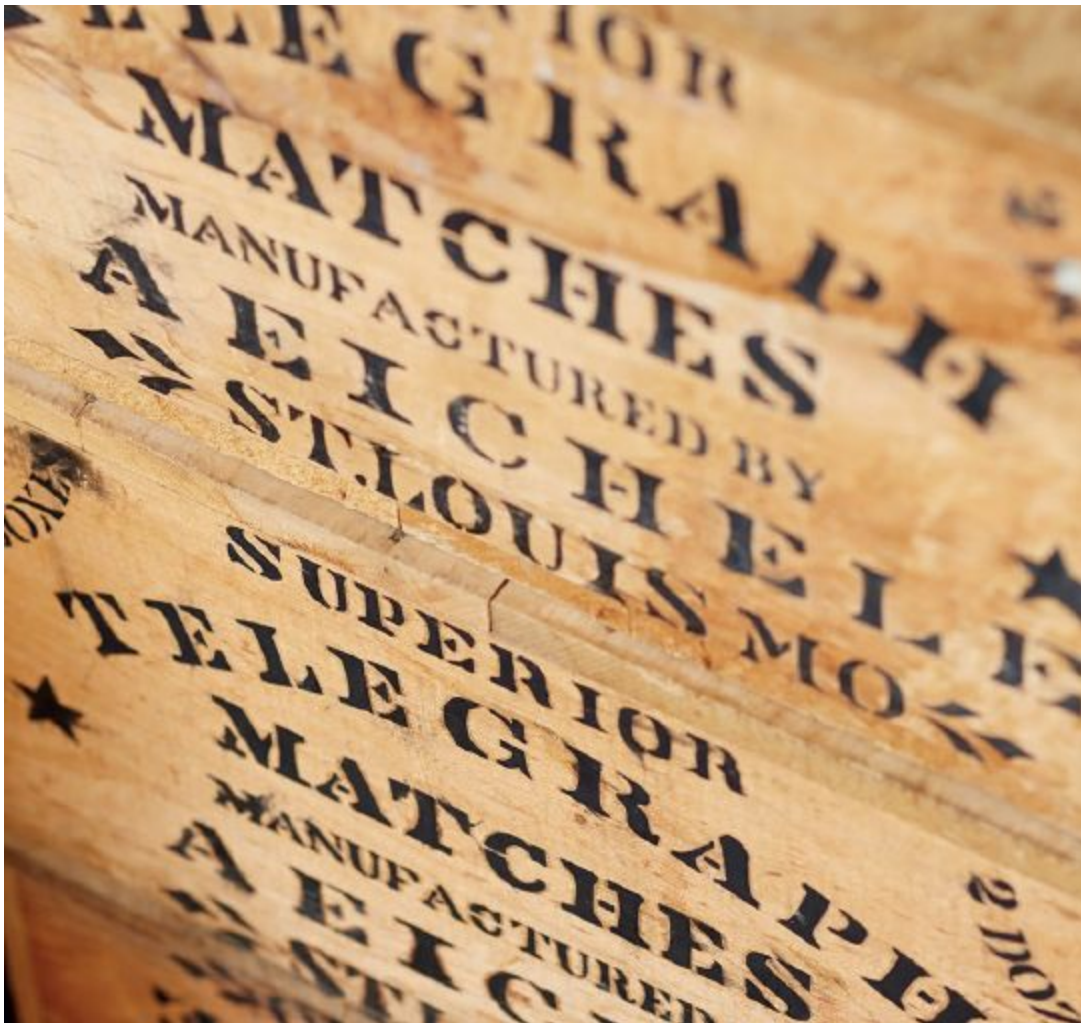 RIOR
TELEGRAPH
MATCHES
MANUFACTURED BY
A EICHELE
ST. LOUIS MO
SUPERIOR
TELEGRAPH
MATCHES
MANUFACTURED
A EIC
ST L
2 DOZ